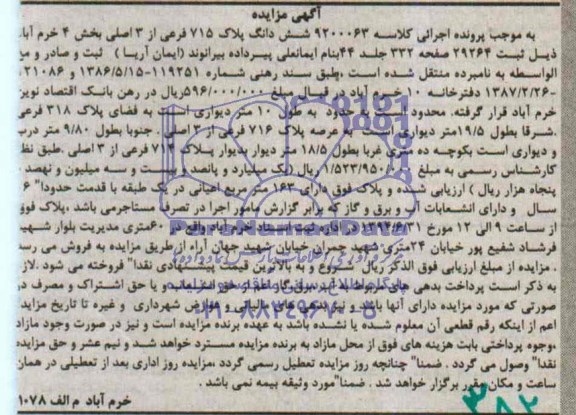 آگهی مزایده
به موجب پرونده اجرائی کلاسه ۹۲۰۰۰۶۳ شش دانگ پلاک ۷۱۵ فرعی از ۳ اصلی بخش ۴ خرم آباد
ذیل ثبت ۲۹۲۶۴ صفحه ۳۳۲ جلد ۱۴۴بنام ایمانعلی پیرداده بیرانوند (ایمان آریا ) ثبت و صادر و مع
الواسطه به نامبرده منتقل شده است ،طبق سند رهنی شماره ۱۱۹۲۵۱-۱۳۸۶/۵/۱۵ و ۲۱۰۸۶
-۱۳۸۷/۲/۲۶ دفترخانه ۱۰ خرم آباد در قبال مبلغ ۵۹۶/۰۰۰/۰۰۰ریال در رهن بانک اقتصاد نوین
خرم آباد قرار گرفته. محدود است به حدود به طول ۱۰ متر دیواری است به فضای پلاک ۳۱۸ فرعی
.شرقا بطول ۱۹/۵متر دیواری است به عرصه پلاک ۷۱۶ فرعی از ۳ اصلی . جنوبا بطول ۹/۸۰ متر درب
و دیواری است بکوچه ده متری غربا بطول ۱۸/۵ متر دیوار بدیوار پلاک ۷۱۴ فرعی از ۳ اصلی .طبق نظر
کارشناس رسمی به مبلغ ۱/۵۲۳/۹۵۰/۰۰۰ ریال (یک میلیارد و پانصد و بیست و سه میلیون و نهصد و
پنجاه هزار ریال ) ارزیابی شده و پلاک فوق دارای ۱۶۳ متر مربع اعیانی در یک طبقه با قدمت حدودا" ۶
سال و دارای انشعابات آب و برق و گاز که برابر گزارش مامور اجرا در تصرف مستاجرمی باشد ،پلاک فوق
از ساعت ۹ الی ۱۲ مورخ ۱۳۹۴/۶/۳۱ در اداره ثبت اسناد خرم آباد واقع در ۶۰متری مدیریت بلوار شهید
فرشاد شفیع پور خیابان ۲۴متری شهید چمران خیابان شهید جهان آراء از طریق مزایده به فروش می رسد
. مزایده از مبلغ ارزیابی فوق الذکر ریال شروع و به بالاترین قیمت پیشنهادی نقدا" فروخته می شود .لازم
به ذکر است پرداخت بدهی های مربوط به آب، برق،گاز اعم از حق انشعاب و یا حق اشتراک و مصرف در
صورتی که مورد مزایده دارای آنها باشد و نیز بدهی های مالیاتی و عوارض شهرداری و غیره تا تاریخ مزایده
اعم از اینکه رقم قطعی آن معلوم شده یا نشده باشد به عهده برنده مزایده است و نیز در صورت وجود مازاد
،وجوه پرداختی بابت هزینه های فوق از محل مازاد به برنده مزایده مسترد خواهد شد و نیم عشر و حق مزایده
نقدا" وصول می گردد . ضمنا" چنانچه روز مزایده تعطیل رسمی گردد ،مزایده روز اداری بعد از تعطیلی در همان
ساعت و مکان مقرر برگزار خواهد شد . ضمنا"مورد وثیقه بیمه نمی باشد .
خرم آباد م الف ۱۰۷۸
۳۸۲
۰۲۱-۸۸۳۴۹۶۷۰-۵